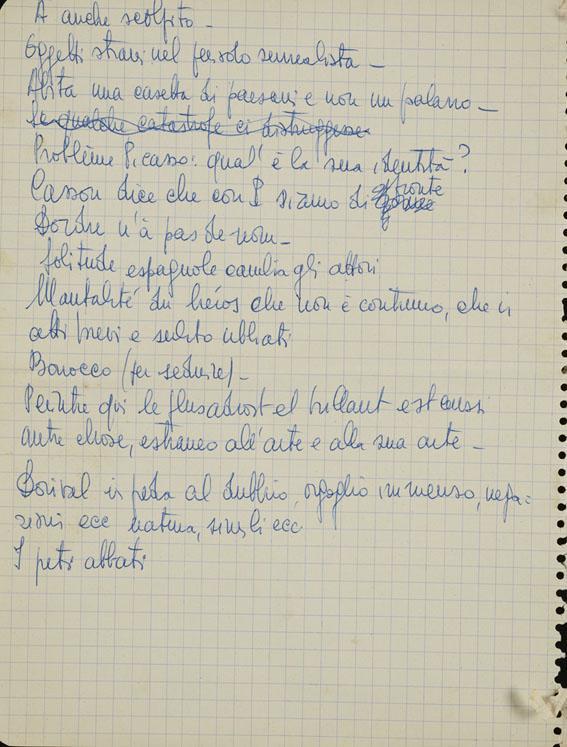 A anche scolpito -
Oggetti strani nel periodo surrealista -
Abita una casetta di paesani e non un palazzo -
Se qualche catastrofe ci distruggesse
Problème Picasso: qual' è la sua identità?
Cassou dice che con P siamo di fronte
n'a pas de nom -
Solitude espagnole cambia gli attori
Mentalité du héros che non è continuo, che si
atti brevi e subito
Barocco (per sedurre) -
Peintre qui le plus adroit et brillant est aussi
autre chose, estraneo all'arte e alla sua arte -
Dorival in preda al dubbio, orgoglio immenso, nega=
zioni ecc natura, simboli ecc
I